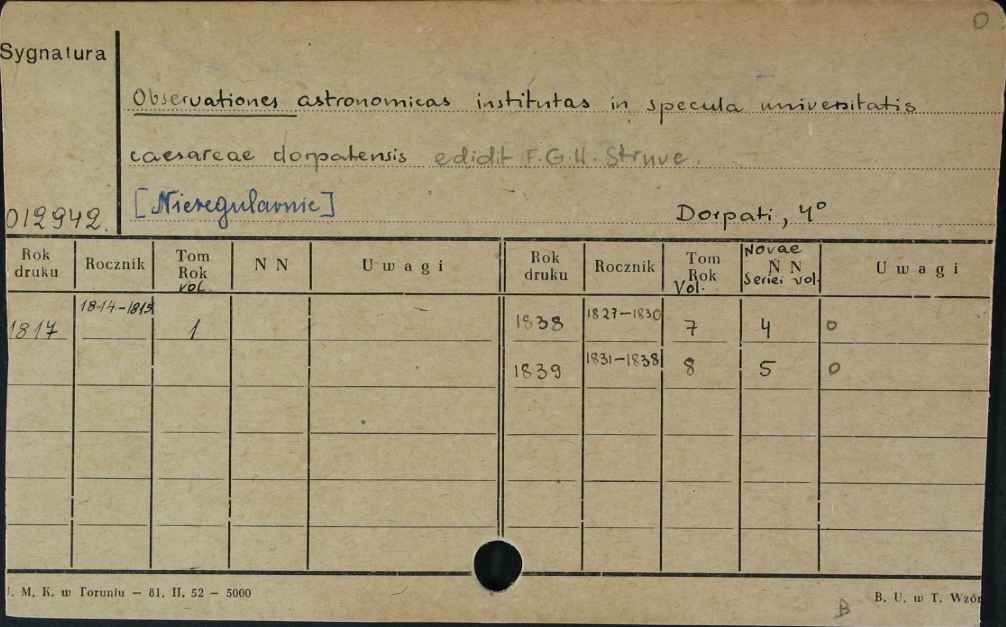 O
Sygnatura
Observationes astronomicas institutas in specula universitatis
caesareae dorpatensis edidit F.G.W. Struve.
[Nieregularnie]
012942.
Dorpati, 4°
Rok druku Rocznik Tom Rok vol. N N Uwagi Rok druku Rocznik Tom Rok Vol. Novae N N Seriei vol. Uwagi
1817 1814-1815 1 1838 1827-1830 7 4 o
1839 1831-1838 8 5 o
. M. K. w Toruniu — 81. II. 52 — 5000
B
B. U. w T. Wzór